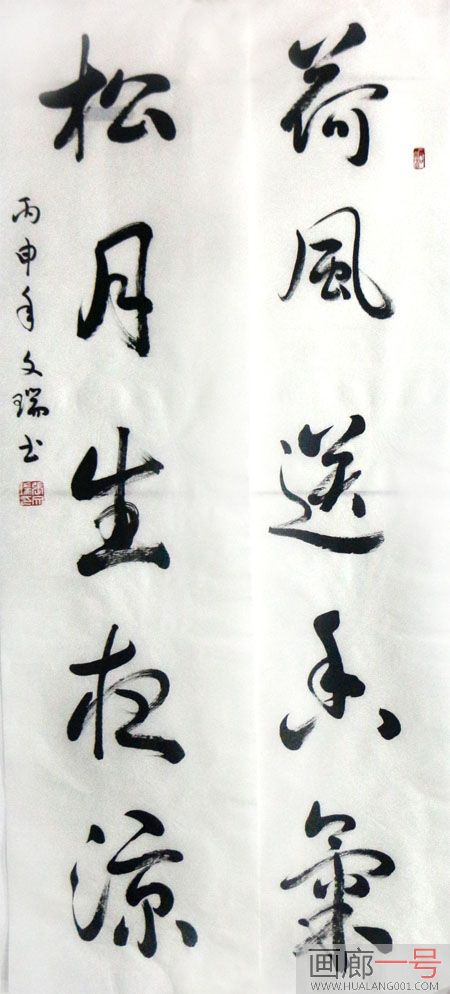 荷風送香氣
松月生夜涼
丙申年文瑞书
画廊一号
WWW.HUALANG001.COM